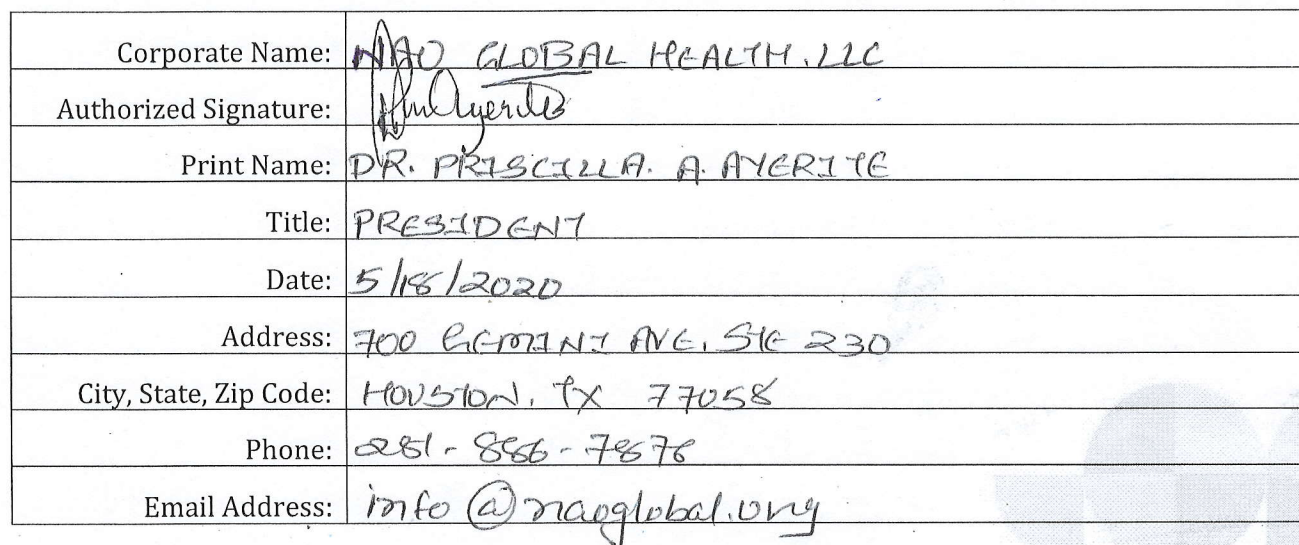 Corporate Name: NAO GLOBAL HEALTH, LLC
Authorized Signature:
Print Name: DR. PRISCILLA. A. AYERITE
Title: PRESIDENT
Date: 5/18/2020
Address: 700 GEMINI AVE, STE 230
City, State, Zip Code: HOUSTON, TX 77058
Phone: 281-886-7878
Email Address: info@naoglobal.org